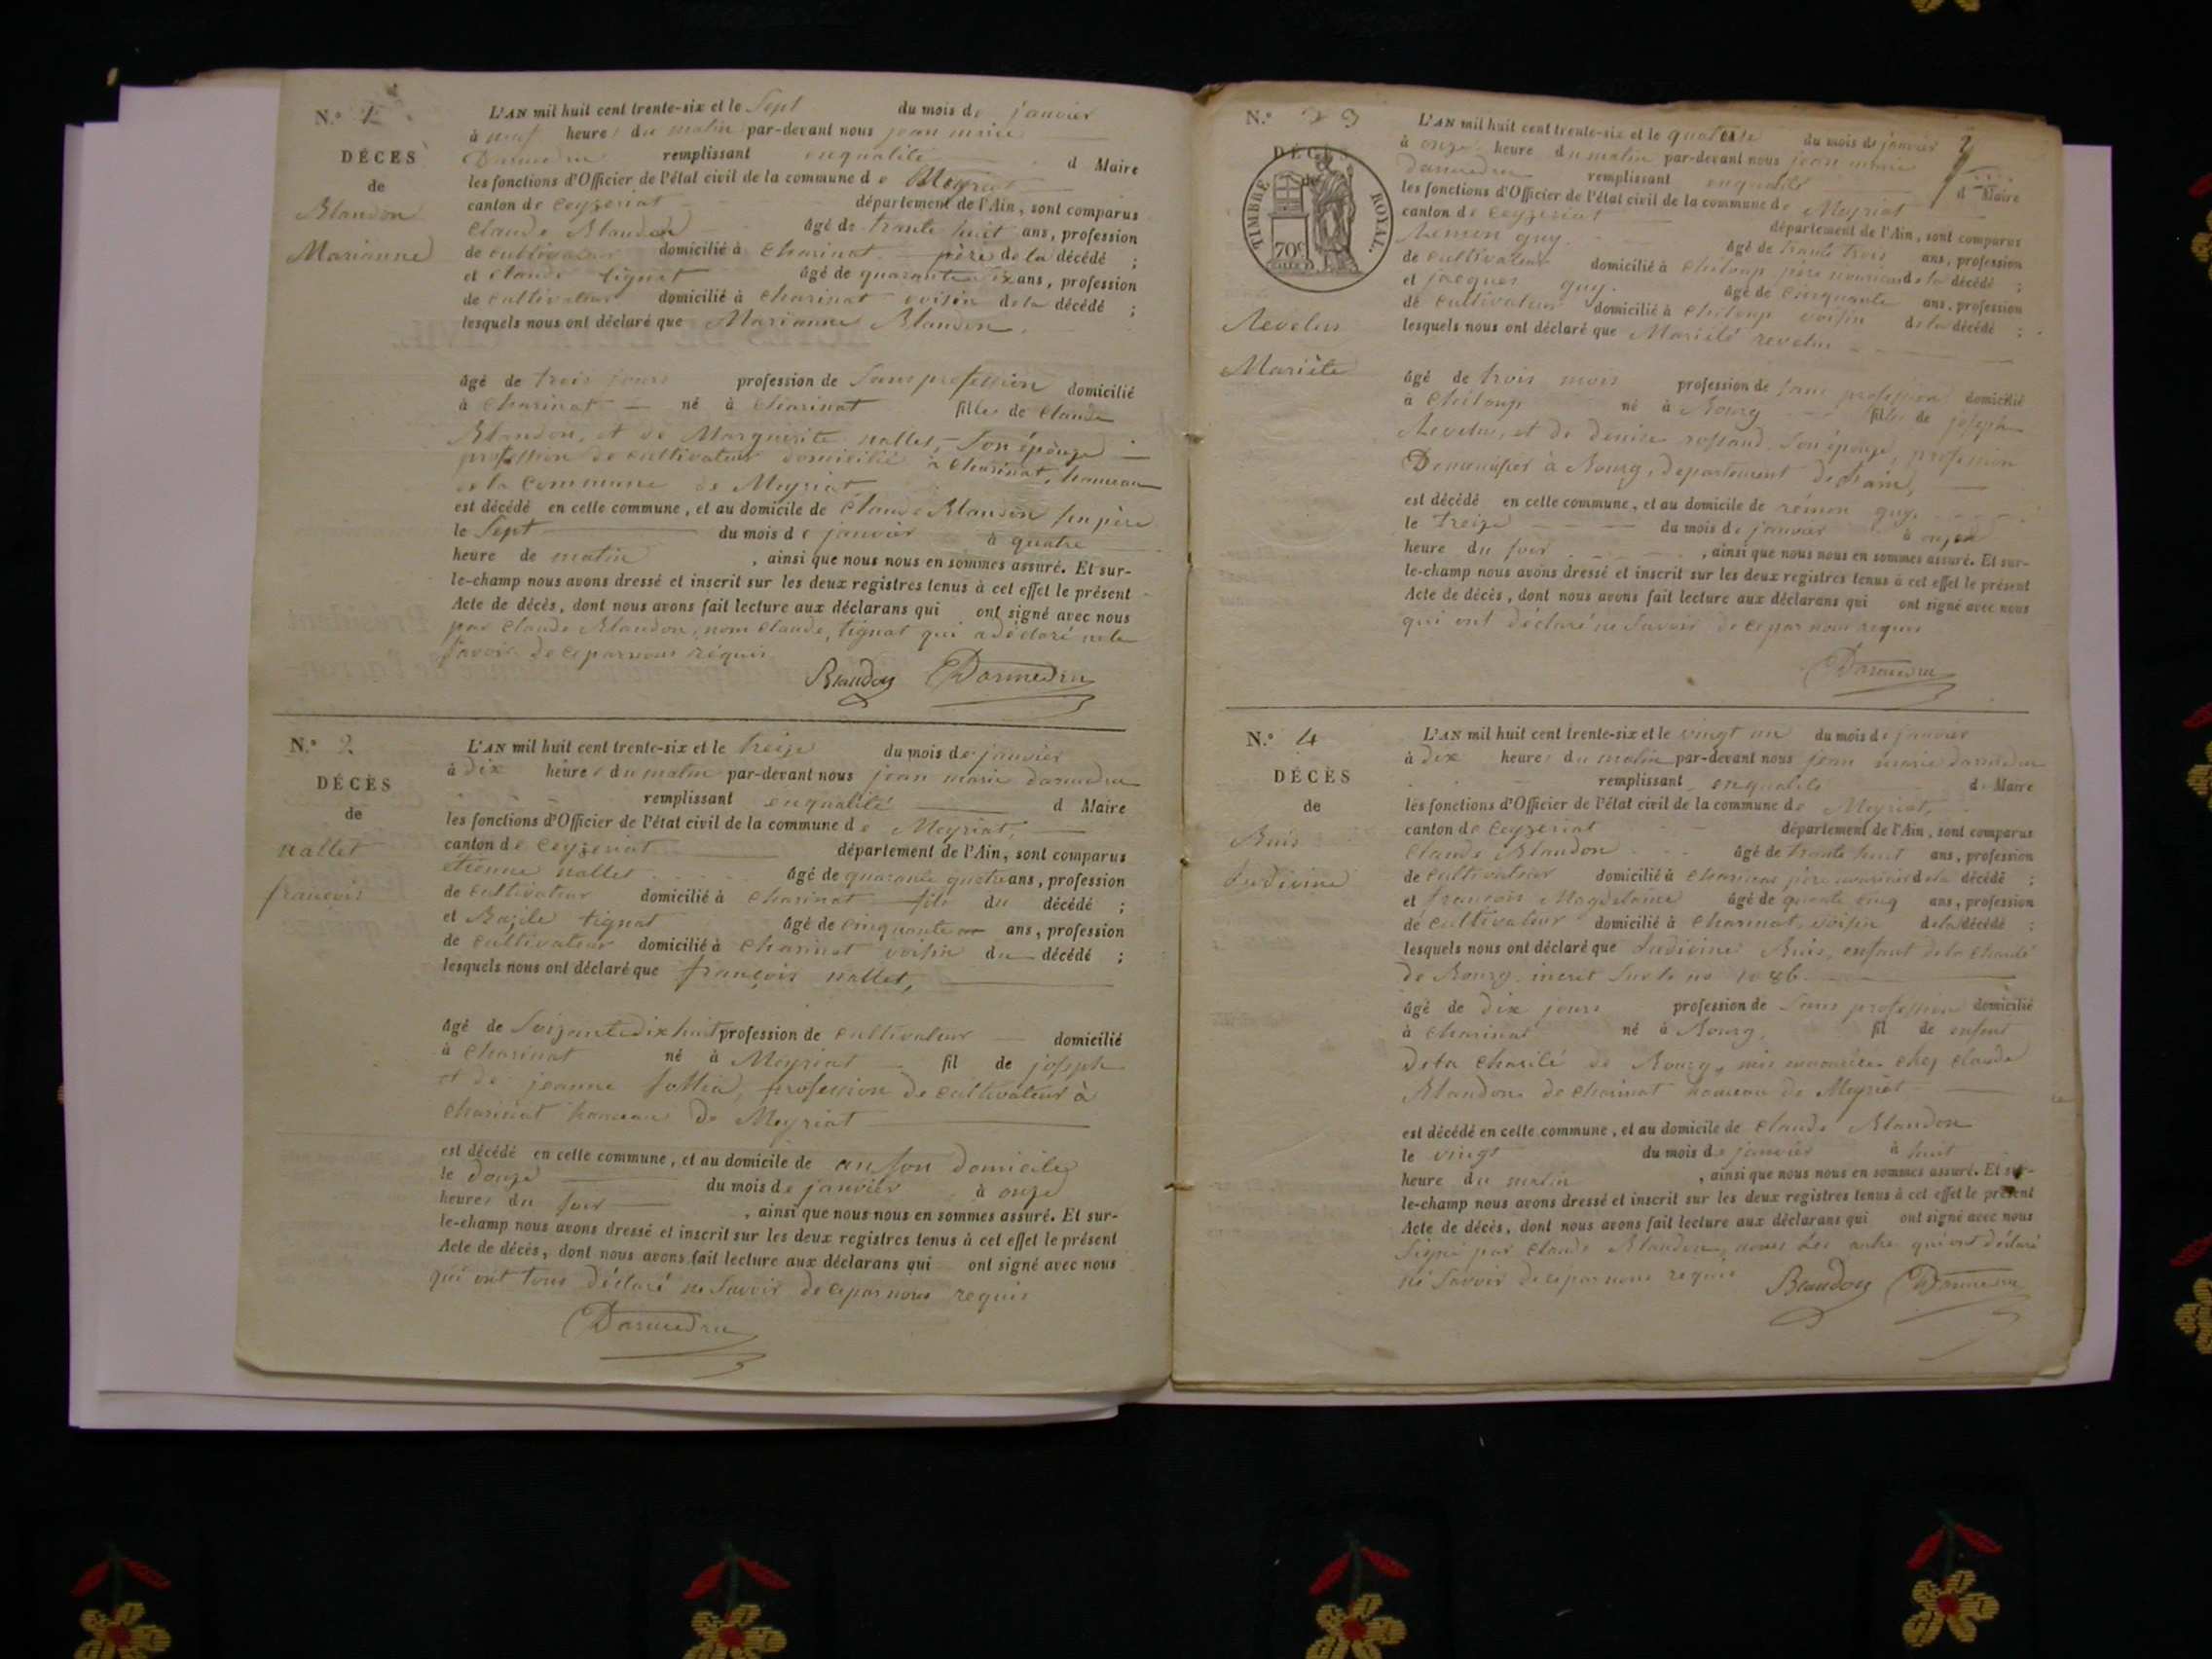 N.° 1
DÉCES
de
Blandon
Marianne
L'AN mil huit cent trente-six et le Sept du mois de janvier
à neuf heures du matin par-devant nous jean marie
Darmedru remplissant enqualité d Maire
les fonctions d'Officier de l'état civil de la commune de Meyriat
canton de Ceyzeriat département de l'Ain, sont comparus
Claude Blandon âgé de trante huit ans, profession
de cultivateur domicilié à Charinat père de la décédé ;
et Claude tignat âgé de quarante ans, profession
de cultivateur domicilié à Charinat voisin de la décédé ;
lesquels nous ont déclaré que Marianne Blandon
âgé de trois jours profession de Sans profession domicilié
à Charinat né à Charinat fille de Claude
Blandon, et de Marguerite nallet, Son épouze
profession de cultivateur domicilié à Charinat, hameau
de la Commune de Meyriat
est décédé en cette commune, et au domicile de Claude Blandon son père
le Sept du mois de janvier à quatre
heure de matin , ainsi que nous nous en sommes assuré. Et sur-
le-champ nous avons dressé et inscrit sur les deux registres tenus à cet effet le présent
Acte de décès, dont nous avons fait lecture aux déclarans qui ont signé avec nous
par Claude Blandon, nom Claude, tignat qui a déclaré ne le
Savoir de ce par nous réquis
Blandon Darmedru
N.° 2
DÉCÈS
de
nallet
françois
L'AN mil huit cent trente-six et le treize du mois de janvier
à dix heures du matin par-devant nous jean marie darmedru
remplissant enqualité d Maire
les fonctions d'Officier de l'état civil de la commune de Meyriat,
canton de Ceyzeriat département de l'Ain, sont comparus
étienne nallet âgé de quarante quatre ans, profession
de cultivateur domicilié à Charinat fils du décédé ;
et Bazile tignat âgé de cinquante ans, profession
de cultivateur domicilié à Charinat voisin du décédé ;
lesquels nous ont déclaré que françois nallet,
âgé de Soizante dix huit profession de cultivateur domicilié
à Charinat né à Meyriat fil de joseph
et de jeanne profession de cultivateur à
Charinat hameau de Meyriat
est décédé en cette commune, et au domicile de en son domicile
le douze du mois de janvier à onze
heures du soir , ainsi que nous nous en sommes assuré. Et sur-
le-champ nous avons dressé et inscrit sur les deux registres tenus à cet effet le présent
Acte de décès, dont nous avons fait lecture aux déclarans qui ont signé avec nous
qui ont tous déclaré ne Savoir de ce par nous requis
Darmedru
N.° 3
DÉCÈS
TIMBRE ROYAL.
70c
Revelus
Mariète
2
L'AN mil huit cent trente-six et le quatorze du mois de janvier
à onze heure du matin par-devant nous jean marie
darmedru remplissant enqualité d Maire
les fonctions d'Officier de l'état civil de la commune de Meyriat
canton de Ceyzeriat département de l'Ain, sont comparus
Remon guy âgé de trante trois ans, profession
de cultivateur domicilié à Chiloup père de la décédé ;
et jacques guy. âgé de cinquante ans, profession
de cultivateur domicilié à Chiloup voisin de la décédé ;
lesquels nous ont déclaré que Mariète revelus
âgé de trois mois profession de sans profession domicilié
à Chiloup né à Bourg fille de joseph
Revelus, et de denise Son épouze, profession
à Bourg, departement de
est décédé en cette commune, et au domicile de rémon guy
le treize du mois de janvier à onze
heure du soir , ainsi que nous nous en sommes assuré. Et sur-
le-champ nous avons dressé et inscrit sur les deux registres tenus à cet effet le présent
Acte de décès, dont nous avons fait lecture aux déclarans qui ont signé avec nous
qui ont déclaré ne Savoir de ce par nous requis
Darmedru
N.° 4
DÉCÈS
de
Buis
Ludivine
L'AN mil huit cent trente-six et le vingt un du mois de janvier
à dix heures du matin par-devant nous jean marie darmedru
remplissant enqualité d Maire
les fonctions d'Officier de l'état civil de la commune de Meyriat,
canton de Ceyzeriat département de l'Ain, sont comparus
Claude Blandon âgé de trante huit ans, profession
de cultivateur domicilié à Charinat père de la décédé ;
et francois Magdelaine âgé de cinq ans, profession
de cultivateur domicilié à Charinat, voisin de la décédé ;
lesquels nous ont déclaré que Ludivine Buis, enfant de la Charité
de Bourg, inscrit Sur le no 1086
âgé de dix jours profession de Sans profession domicilié
à Charinat né à Bourg, fil de enfant
de la Charité de Bourg, mis chez claude
Blandon de Charinat hameau de Meyriat
est décédé en cette commune, et au domicile de Claude Blandon
le vingt du mois de janvier à huit
heure du matin , ainsi que nous nous en sommes assuré. Et sur-
le-champ nous avons dressé et inscrit sur les deux registres tenus à cet effet le présent
Acte de décès, dont nous avons fait lecture aux déclarans qui ont signé avec nous
Signé par Claude Blandon, autre qui ont déclaré
ne Savoir de ce par nous requis
Blandon Darmedru